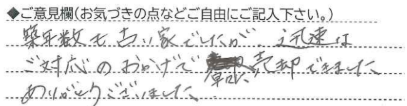 ◆ご意見欄(お気づきの点などご自由にご記入下さい。)
築年数も古い家でしたが 迅速な
ご対応のおかげで 早く 売却できました
ありがとうございました